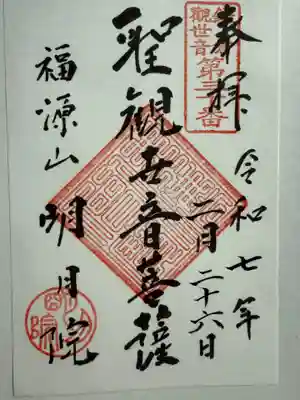 奉拝
令和七年
二月二十六日
觀世音第三十番
聖觀世音菩薩
福源山明月院